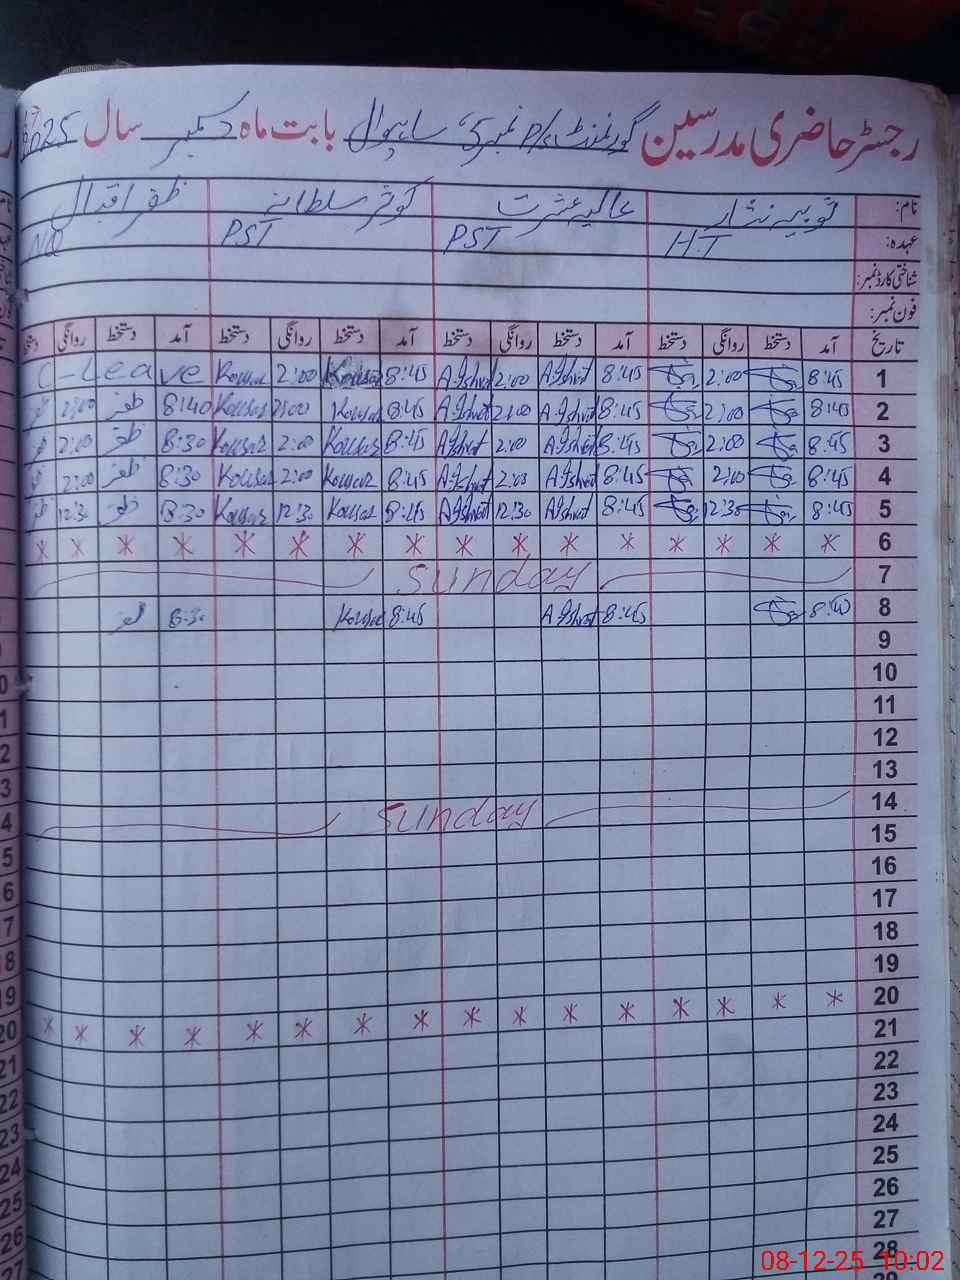 رجسٹر حاضری مدرسین گورنمنٹ P/S نمبر 5، ساہیوال بابت ماہ دسمبر سال 2025
نام: ثوبیہ نثار عالیہ عشرت کوثر سلطانہ ظفر اقبال
عہدہ: H.T PST PST NQ
شناختی کارڈ نمبر:
فون نمبر:
تاریخ آمد دستخط روانگی دستخط آمد دستخط روانگی دستخط آمد دستخط روانگی دستخط آمد دستخط روانگی
1 8:45 2:00 8:45 A.Ishrat 2:00 A.Ishrat 8:45 Kousar 2:00 Kousar C-Leave
2 8:40 2:00 8:45 A.Ishrat 2:00 A.Ishrat 8:45 Kousar 2:00 Kousar 8:40 ظفر 2:00
3 8:45 2:00 8:45 A.Ishrat 2:00 A.Ishrat 8:45 Kousar 2:00 Kousar 8:30 ظفر 2:00
4 8:45 2:00 8:45 A.Ishrat 2:00 A.Ishrat 8:45 Kousar 2:00 Kousar 8:30 ظفر 2:00
5 8:45 12:30 8:45 A.Ishrat 12:30 A.Ishrat 8:45 Kousar 12:30 Kousar 8:30 ظفر 12:30
6 * * * * * * * * * * * * * * *
7 Sunday
8 8:40 8:45 A.Ishrat 8:45 Kousar 8:30 ظفر
9
10
11
12
13
14 Sunday
15
16
17
18
19
20 * * * * * * * * * * * * * * *
21
22
23
24
25
26
27
28
08-12-25 10:02